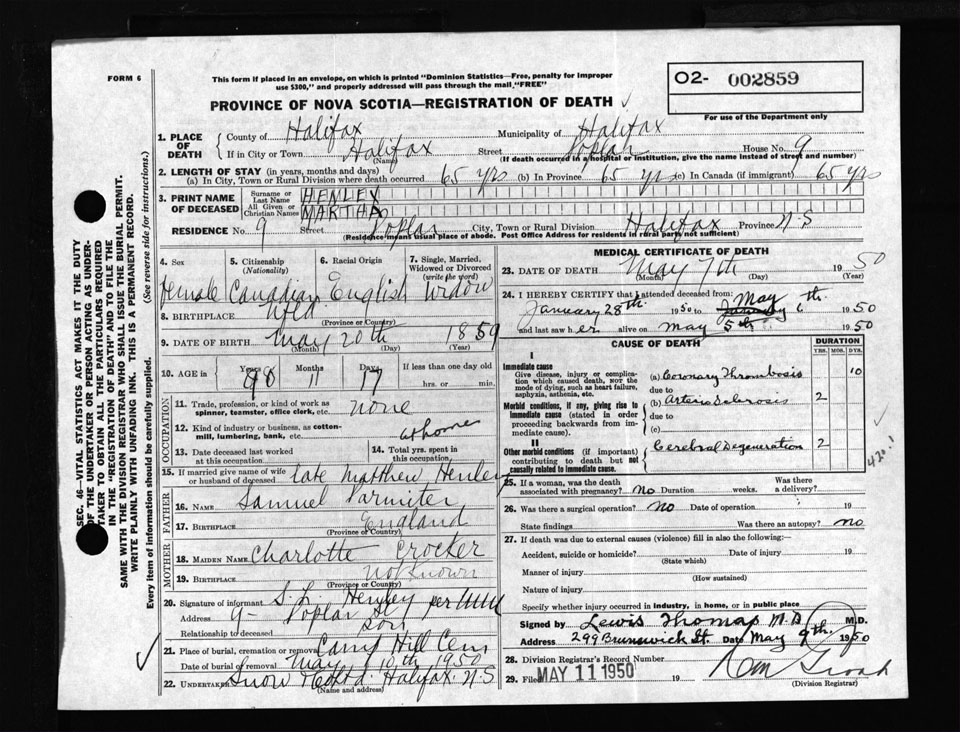 FORM 6
This form if placed in an envelope, on which is printed "Dominion Statistics—Free, penalty for improper
use $300," and properly addressed will pass through the mail, "FREE"
O2- 002859
For use of the Department only
PROVINCE OF NOVA SCOTIA—REGISTRATION OF DEATH
1. PLACE OF DEATH { County of Halifax Municipality of Halifax
If in City or Town Halifax (Name) Street Poplar House No. 9
(If death occurred in a hospital or institution, give the name instead of street and number)
2. LENGTH OF STAY (in years, months and days)
(a) In City, Town or Rural Division where death occurred 65 yrs (b) In Province 65 yrs (c) In Canada (if immigrant) 65 yrs
3. PRINT NAME OF DECEASED { Surname or Last Name HENLEY
All Given or Christian Names MARTHA
RESIDENCE No. 9 Street Poplar City, Town or Rural Division Halifax Province N-S
(Residence means usual place of abode. Post Office Address for residents in rural parts not sufficient)
4. Sex 5. Citizenship (Nationality) 6. Racial Origin 7. Single, Married, Widowed or Divorced (write the word)
Female Canadian English Widow
8. BIRTHPLACE Nfld
(Province or Country)
9. DATE OF BIRTH May 20th 1859
(Month) (Day) (Year)
10. AGE in { Years Months Days If less than one day old
11 17 hrs. or min.
OCCUPATION
11. Trade, profession, or kind of work as spinner, teamster, office clerk, etc. none
12. Kind of industry or business, as cotton-mill, lumbering, bank, etc. at home
13. Date deceased last worked at this occupation 14. Total yrs. spent in this occupation,
15. If married give name of wife or husband of deceased late Matthew Henley
FATHER
16. Name Samuel Parmiter
17. Birthplace England
(Province or Country)
MOTHER
18. Maiden Name Charlotte Crocker
19. Birthplace Not Known
(Province or Country)
20. Signature of informant S.L. Henley per
Address 9- Poplar St.
Relationship to deceased son
21. Place of burial, cremation or removal Camp Hill Cem
Date of burial or removal May 10th 1950
22. Undertaker Snow & Co Ltd. Halifax. N-S
(Name and address)
MEDICAL CERTIFICATE OF DEATH
23. DATE OF DEATH May 7th 1950
(Month) (Day)
24. I HEREBY CERTIFY that I attended deceased from:
January 28th. 1950 to May 6th. 1950
and last saw her alive on May 5th 1950
CAUSE OF DEATH DURATION
YRS. MOS. DYS.
I
Immediate cause
Give disease, injury or complication which caused death, NOT the mode of dying, such as heart failure, asphyxia, asthenia, etc.
(a) Coronary Thrombosis 10
due to
Morbid conditions, if any, giving rise to immediate cause (stated in order proceeding backwards from immediate cause).
(b) Arterio Sclerosis 2
due to
(c)
II
Other morbid conditions (if important) contributing to death but not causally related to immediate cause.
Cerebral Degeneration 2
420.1
25. If a woman, was the death associated with pregnancy? No Duration weeks. Was there a delivery?
26. Was there a surgical operation? No Date of operation 19
State findings Was there an autopsy? no
27. If death was due to external causes (violence) fill in also the following:—
Accident, suicide or homicide? Date of injury 19
(State which)
Manner of injury
(How sustained)
Nature of injury
Specify whether injury occurred in industry, in home, or in public place
Signed by Lewis Thomas M.D M.D.
Address 299 Brunswick St. Date May 9th 1950
28. Division Registrar's Record Number
29. Filed MAY 11 1950 19
(Division Registrar)
SEC. 46—VITAL STATISTICS ACT MAKES IT THE DUTY
OF THE UNDERTAKER OR PERSON ACTING AS UNDER-
TAKER TO OBTAIN ALL THE PARTICULARS REQUIRED
IN THE "REGISTRATION OF DEATH" AND TO FILE THE
SAME WITH THE DIVISION REGISTRAR WHO SHALL ISSUE THE BURIAL PERMIT.
WRITE PLAINLY WITH UNFADING INK. THIS IS A PERMANENT RECORD.
Every item of information should be carefully supplied. (See reverse side for instructions.)